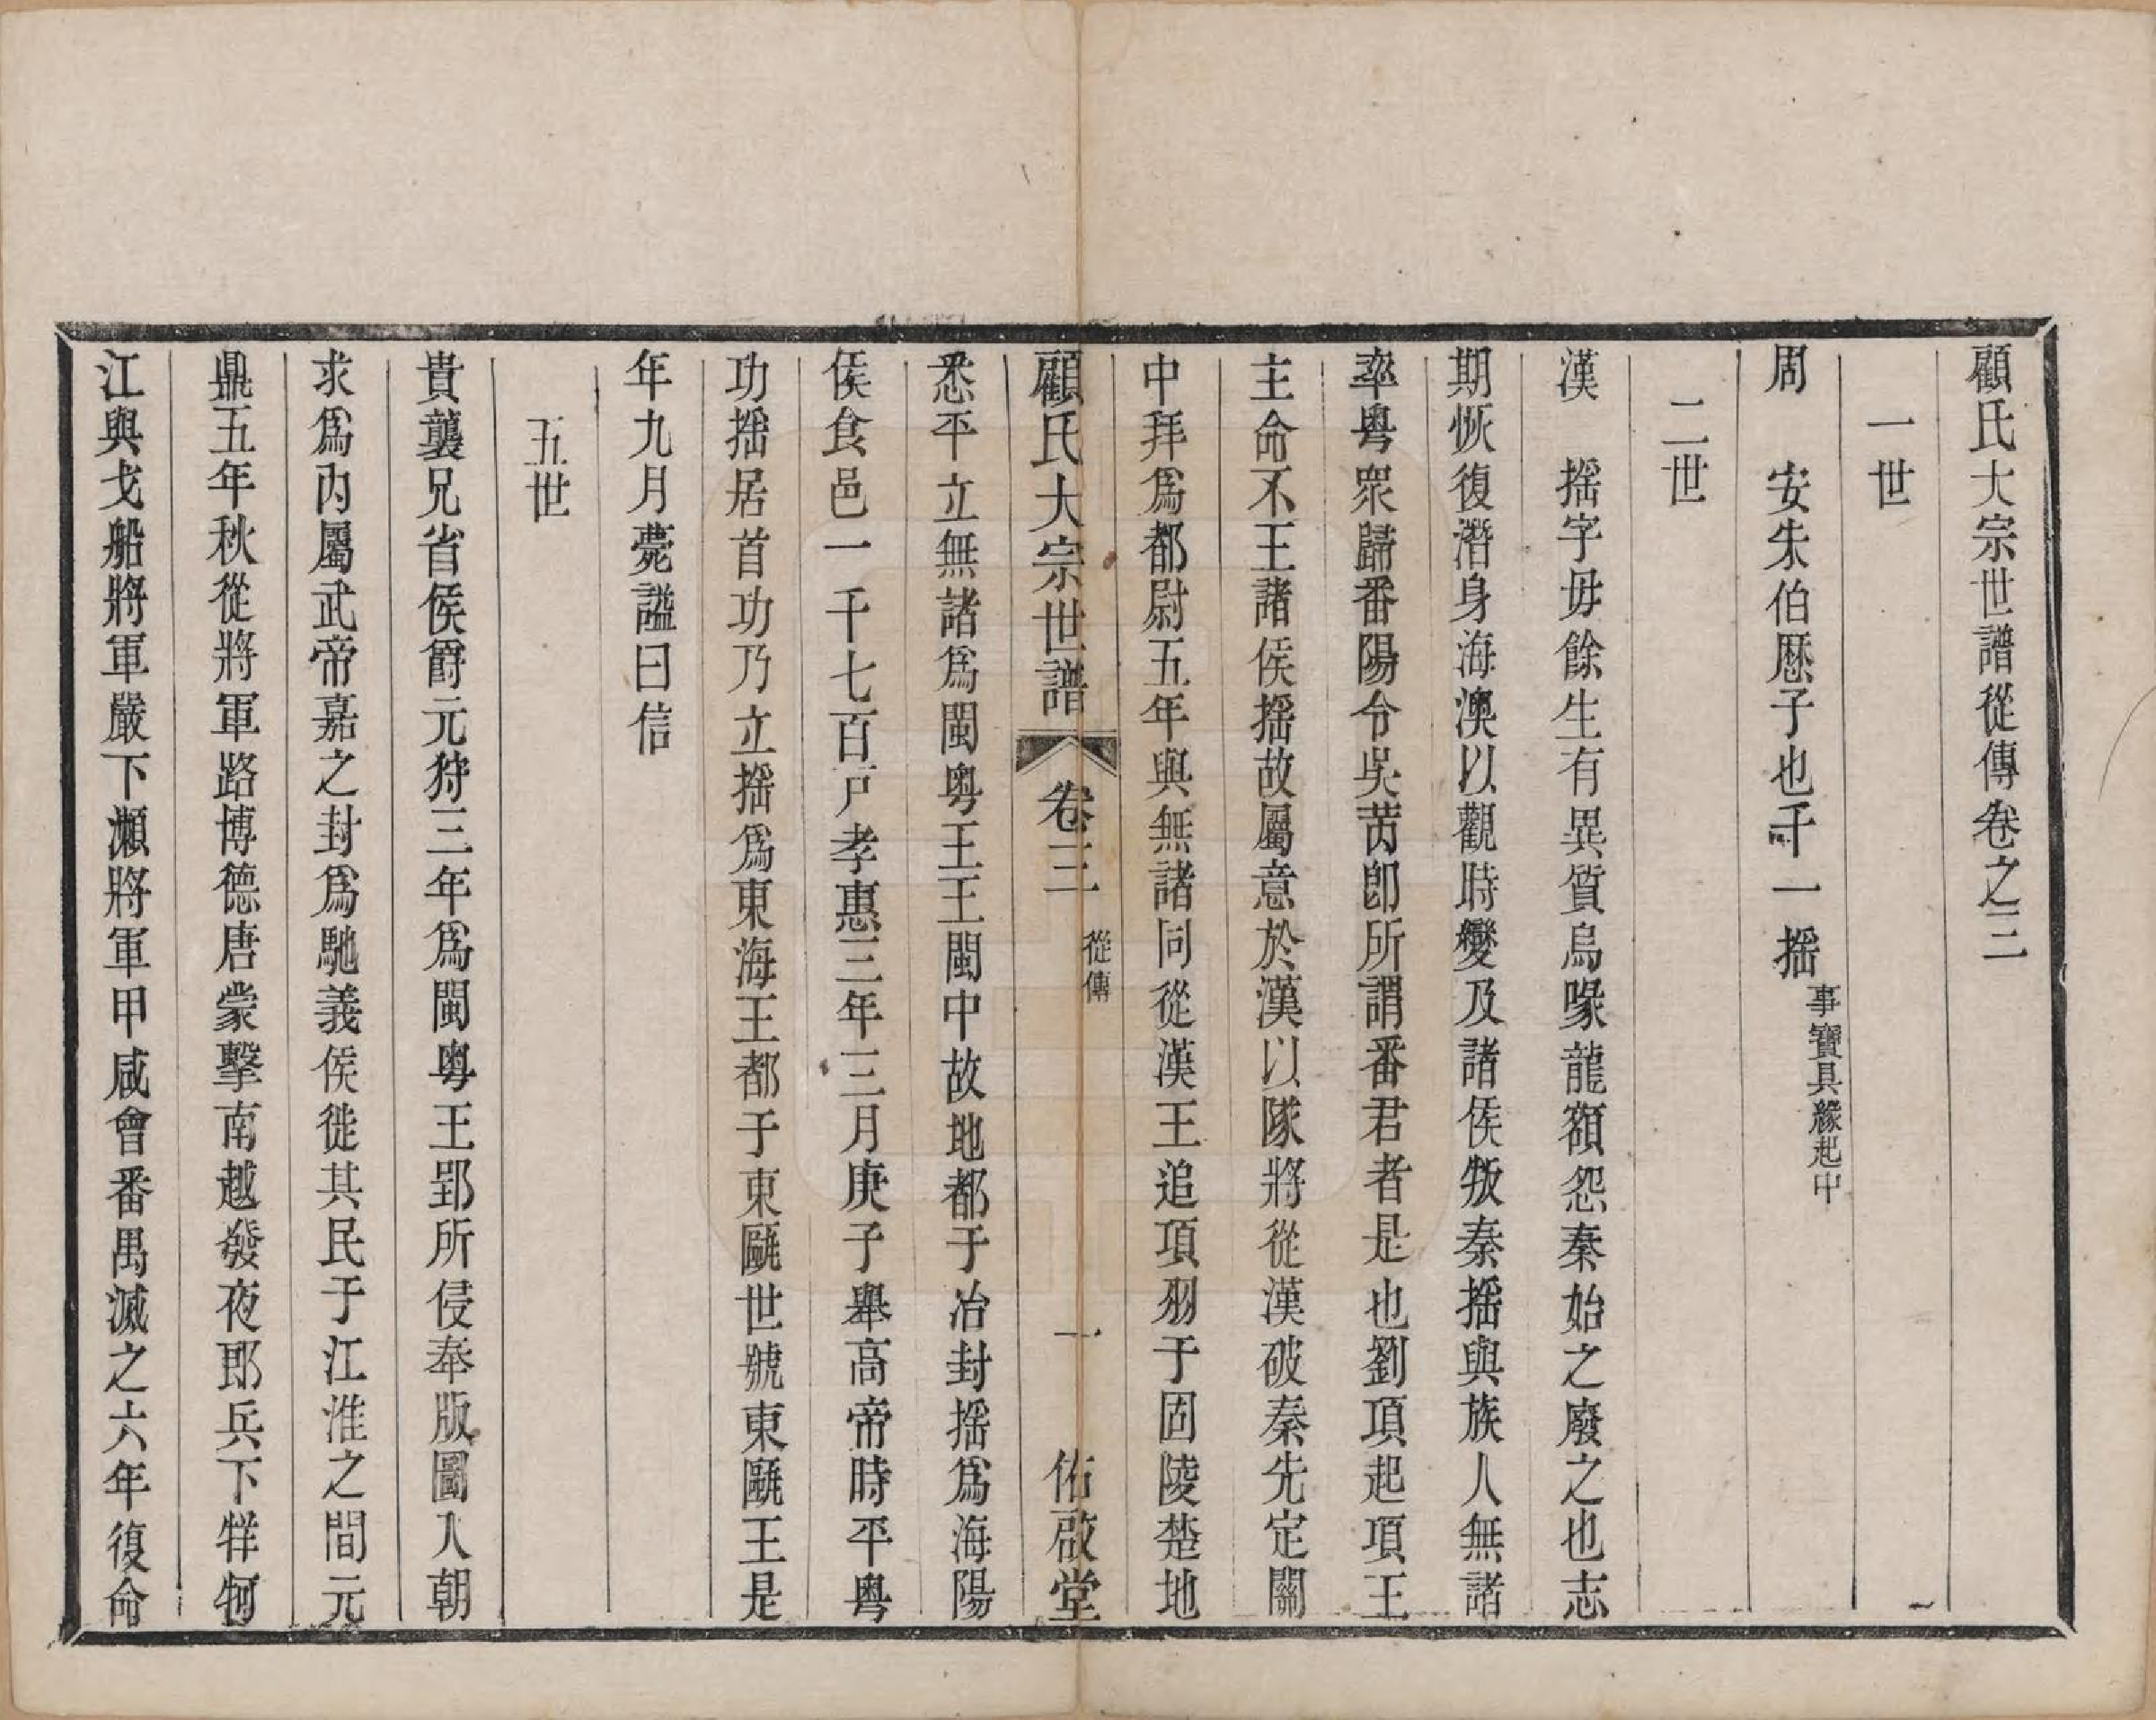 顧氏大宗世譜從傳卷之三
一世
周　安朱伯厯子也子一搖事實具緣起中
二世
漢　搖字毋餘生有異質烏喙龍額怨秦始之廢之也志
期恢復潛身海澳以觀時變及諸侯叛秦搖與族人無諸
率粤眾歸番陽令吳芮卽所謂番君者是也劉項起項王
主命不王諸侯搖故屬意於漢以隊將從漢破秦先定關
中拜爲都尉五年與無諸同從漢王追項羽于固陵楚地
顧氏大宗世譜　卷三　從傳　一　佑啟堂
悉平立無諸爲閩粤王王閩中故地都于冶封搖爲海陽
侯食邑一千七百戸孝惠三年三月庚子舉高帝時平粤
功搖居首功乃立搖爲東海王都于東甌世號東甌王是
年九月薨謚曰信
五世
貴襲兄省侯爵元狩三年爲閩粤王郢所侵奉版圖入朝
求爲內屬武帝嘉之封爲馳義侯徙其民于江淮之間元
鼎五年秋從將軍路博德唐蒙擊南越發夜郎兵下牂牁
江與戈船將軍嚴下瀬將軍甲咸會番禺滅之六年復命